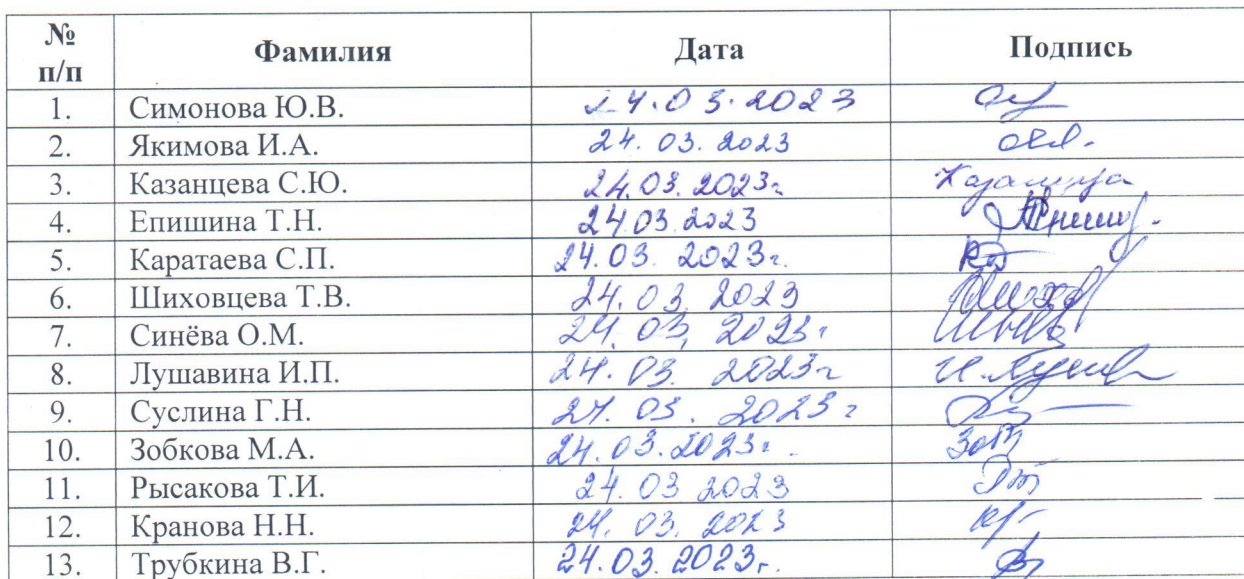 № п/п Фамилия Дата Подпись
1. Симонова Ю.В. 24.03.2023
2. Якимова И.А. 24.03.2023
3. Казанцева С.Ю. 24.03.2023г Казанцева
4. Епишина Т.Н. 24.03.2023
5. Каратаева С.П. 24.03.2023г.
6. Шиховцева Т.В. 24.03.2023
7. Синёва О.М. 24.03.2023г
8. Лушавина И.П. 24.03.2023г
9. Суслина Г.Н. 24.03.2023г
10. Зобкова М.А. 24.03.2023г.
11. Рысакова Т.И. 24.03 2023
12. Кранова Н.Н. 24.03.2023
13. Трубкина В.Г. 24.03.2023г.